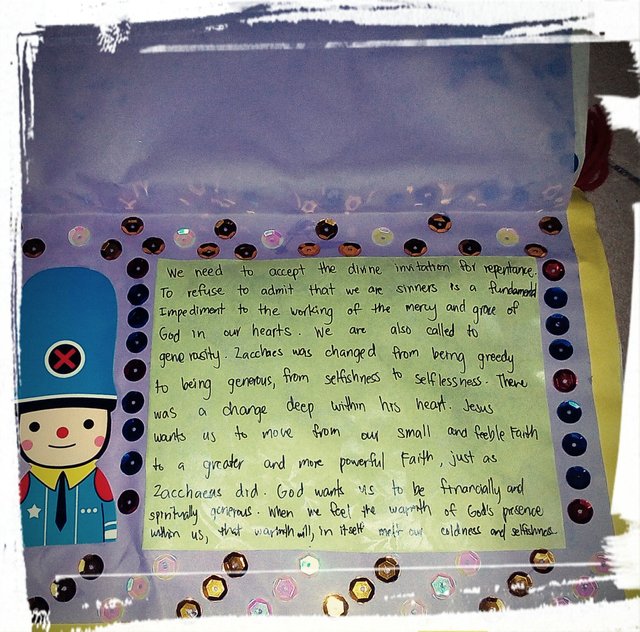 We need to accept the divine invitation for repentance.
To refuse to admit that we are sinners is a fundamental
Impediment to the working of the mercy and grace of
God in our hearts. We are also called to
generosity. Zacchaes was changed from being greedy
to being generous, from selfishness to selflessness. There
was a change deep within his heart. Jesus
wants us to move from our small and feeble Faith
to a greater and more powerful Faith, just as
Zacchaeus did. God wants us to be financially and
spiritually generous. When we feel the warmth of God's presence
within us, that warmth will, in itself melt our coldness and selfishness.